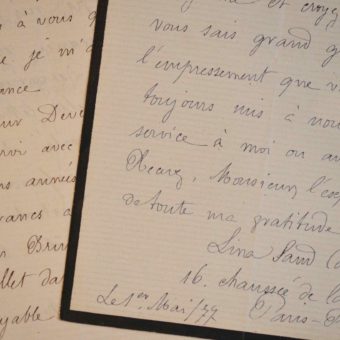 e à vous
e je m'a
ance
ur Deve
rvi avec
rs année
ances a
n Brun
llet da
oyable
et croyez
vous sais grand g
l'empressement que v
toujours mis à nou
service à moi ou au
Recevez, Monsieur, l'exp
de toute ma gratitude
Lina Sand
16. chaussée de l
Paris
Le 1er Mai/77